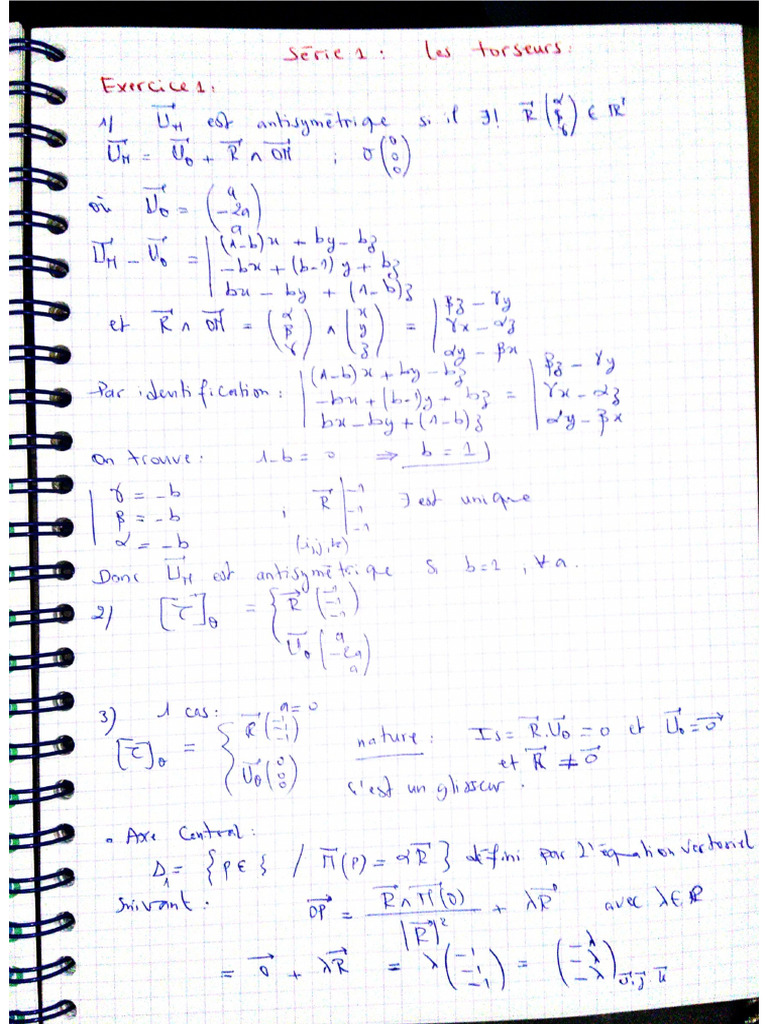 Série 1 : Les torseurs :
Exercice 1 :
1) U⃗_M est antisymétrique si il ∃! R⃗ (α β γ) ∈ ℝ³
U⃗_M = U⃗_0 + R⃗ ∧ OM⃗ ; O (0 0 0)
où U⃗_0 = (a -2a a)
U⃗_M - U⃗_0 = | (1-b)x + by - bz
-bx + (b-1)y + bz
bx - by + (1-b)z
et R⃗ ∧ OM⃗ = (α β γ) ∧ (x y z) = | βz - γy
γx - αz
αy - βx
Par identification : | (1-b)x + by - bz = | βz - γy
-bx + (b-1)y + bz = γx - αz
bx - by + (1-b)z αy - βx
On trouve : 1-b = 0 ⇒ b = 1
| γ = -b
β = -b ; R⃗ | -1 -1 -1 ∃ est unique
α = -b (i,j,k)
Donc U⃗_M est antisymétrique si b=1, ∀a.
2) [τ]_0 = { R⃗ (-1 -1 -1)
U⃗_0 (a -2a a)
3) 1 cas : a = 0
[τ]_0 = { R⃗ (-1 -1 -1) nature : Is = R⃗.U⃗_0 = 0 et U⃗_0 = 0⃗
et R⃗ ≠ 0⃗
U⃗_0 (0 0 0) c'est un glisseur.
• Axe Central :
Δ_1 = { P ∈ } / M⃗(P) = αR⃗ } défini par l'équation vectoriel
suivant : OP⃗ = R⃗ ∧ M⃗(O) / |R⃗|² + λR⃗ avec λ ∈ ℝ
= 0⃗ + λR⃗ = λ (-1 -1 -1) = (-λ -λ -λ)